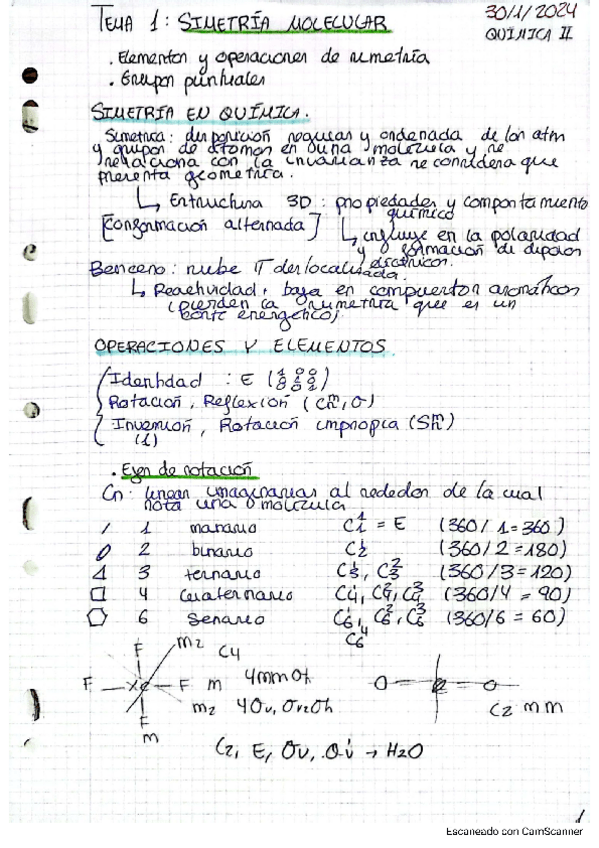 30/1/2024
TEMA 1: SIMETRÍA MOLECULAR
QUÍMICA II
. Elementos y operaciones de simetría
. Grupos puntuales
SIMETRÍA EN QUÍMICA.
Simetría: disposición regular y ordenada de los atm
y grupos de átomos en una molécula y se
relaciona con la invarianza se considera que
presenta geometría.
↳ Estructura 3D: propiedades y comportamiento
químico
[Conformación alternada] ↳ influye en la polaridad
y formación de dipolos
eléctricos.
Benceno: nube π deslocalizada.
↳ Reactividad: baja en compuestos aromáticos
(pierden la simetría que es un
coste energético)
OPERACIONES Y ELEMENTOS
Identidad : E (1 0 0
0 1 0
0 0 1)
Rotación, Reflexión (Cnm, σ)
Inversión, Rotación impropia (Snm)
(i)
. Ejes de rotación
Cn: líneas imaginarias al rededor de la cual
rota una molécula
1 C11 = E (360/1=360)
2 binario C12 (360/2=180)
3 ternario C13, C23 (360/3=120)
4 cuaternario C14, C24, C34 (360/4 = 90)
6 senario C16, C26, C36 (360/6 = 60)
C46
F m2 C4
F Xe F m 4mm
m2
F
m
O O
C2 mm
C2, E, σv, σv' → H2O
1
Escaneado con CamScanner